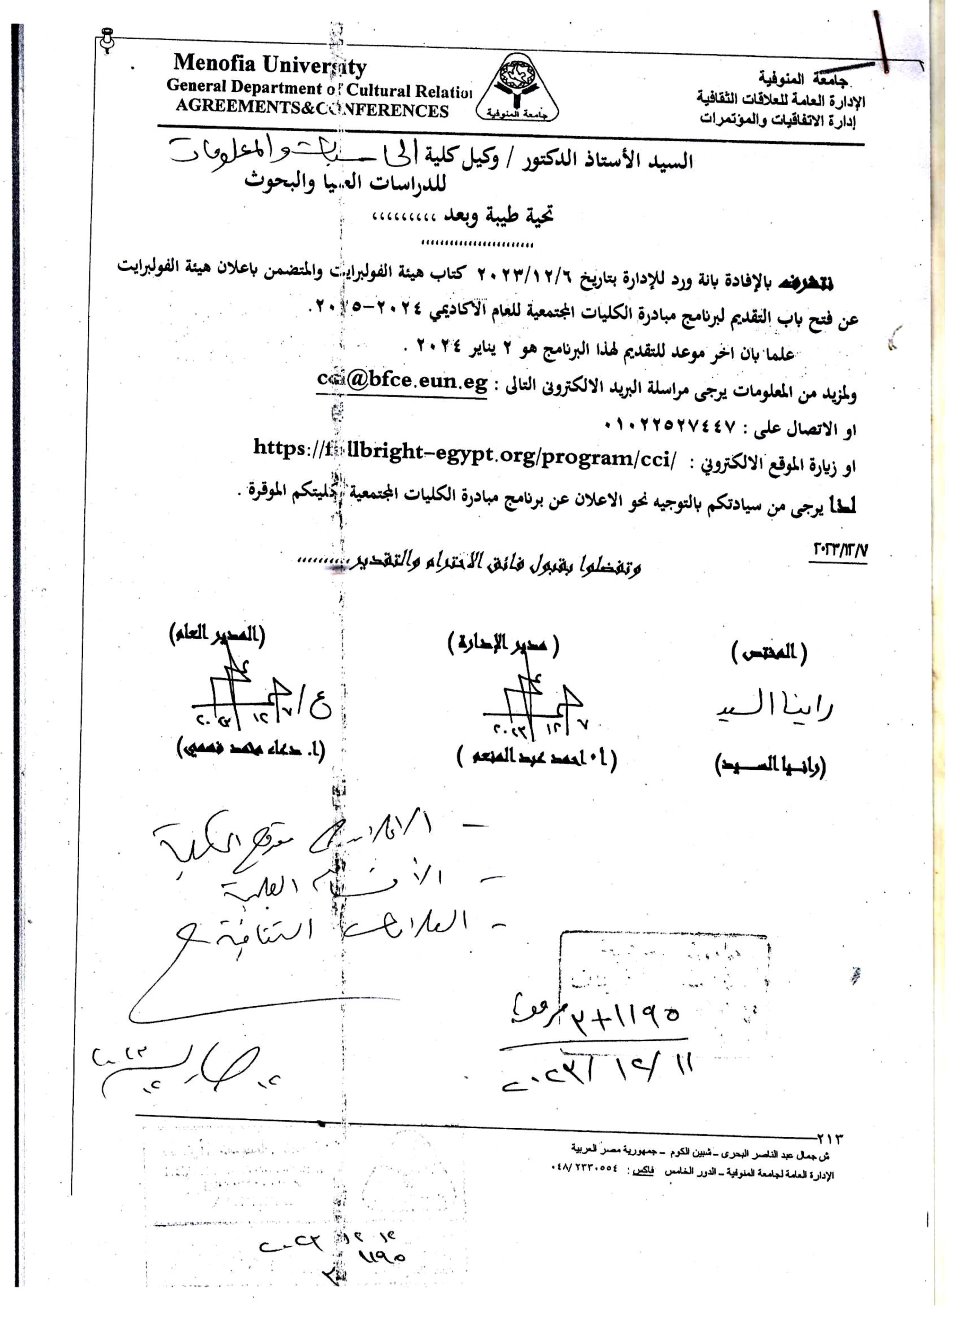 Menofia University
General Department of Cultural Relation
AGREEMENTS&CONFERENCES
جامعة المنوفية
جامعة المنوفية
الإدارة العامة للعلاقات الثقافية
إدارة الاتفاقيات والمؤتمرات
السيد الأستاذ الدكتور / وكيل كلية الحاسبات والمعلومات
للدراسات العليا والبحوث
تحية طيبة وبعد ,,,,,,,,,
,,,,,,,,,,,,,,,,,,,,,,,
نتشرف بالإفادة بانة ورد للإدارة بتاريخ ٢٠٢٣/١٢/٦ كتاب هيئة الفولبرايت والمتضمن باعلان هيئة الفولبرايت
عن فتح باب التقديم لبرنامج مبادرة الكليات المجتمعية للعام الأكاديمي ٢٠٢٤-٢٠٢٥.
علما بان اخر موعد للتقديم لهذا البرنامج هو ٢ يناير ٢٠٢٤ .
ولمزيد من المعلومات يرجى مراسلة البريد الالكترونى التالى : cci@bfce.eun.eg
او الاتصال على : ٠١٠٢٢٥٢٧٤٤٧
او زيارة الموقع الالكتروني : https://fulbright-egypt.org/program/cci/
لذا يرجى من سيادتكم بالتوجيه نحو الاعلان عن برنامج مبادرة الكليات المجتمعية بكليتكم الموقرة .
٢٠٢٣/١٢/٧
وتفضلوا بقبول فائق الاحترام والتقدير,,,,,,,,,
(المختص) (مدير الإدارة) (المدير العام)
رانيا السيد
٢٠٢٣ ١٢ ٧
ع/ ٢٠٢٣ ١٢ ٧
(رانيا السيد) (أ. احمد عبد المنعم) (ا. دعاء محمد فهمي)
- الاعلان على موقع الكلية
- الأقسام العلمية
- العلاقات الثقافية
٣+١١٩٥
٢٠٢٣/١٢/١١
٢١٣
ش جمال عبد الناصر البحرى – شبين الكوم – جمهورية مصر العربية
الإدارة العامة لجامعة المنوفية – الدور الخامس فاكس : ٠٤٨/٢٣٣٠٥٥٤
٢٠٢٣ ١٢ ١٢
١١٩٥
٣